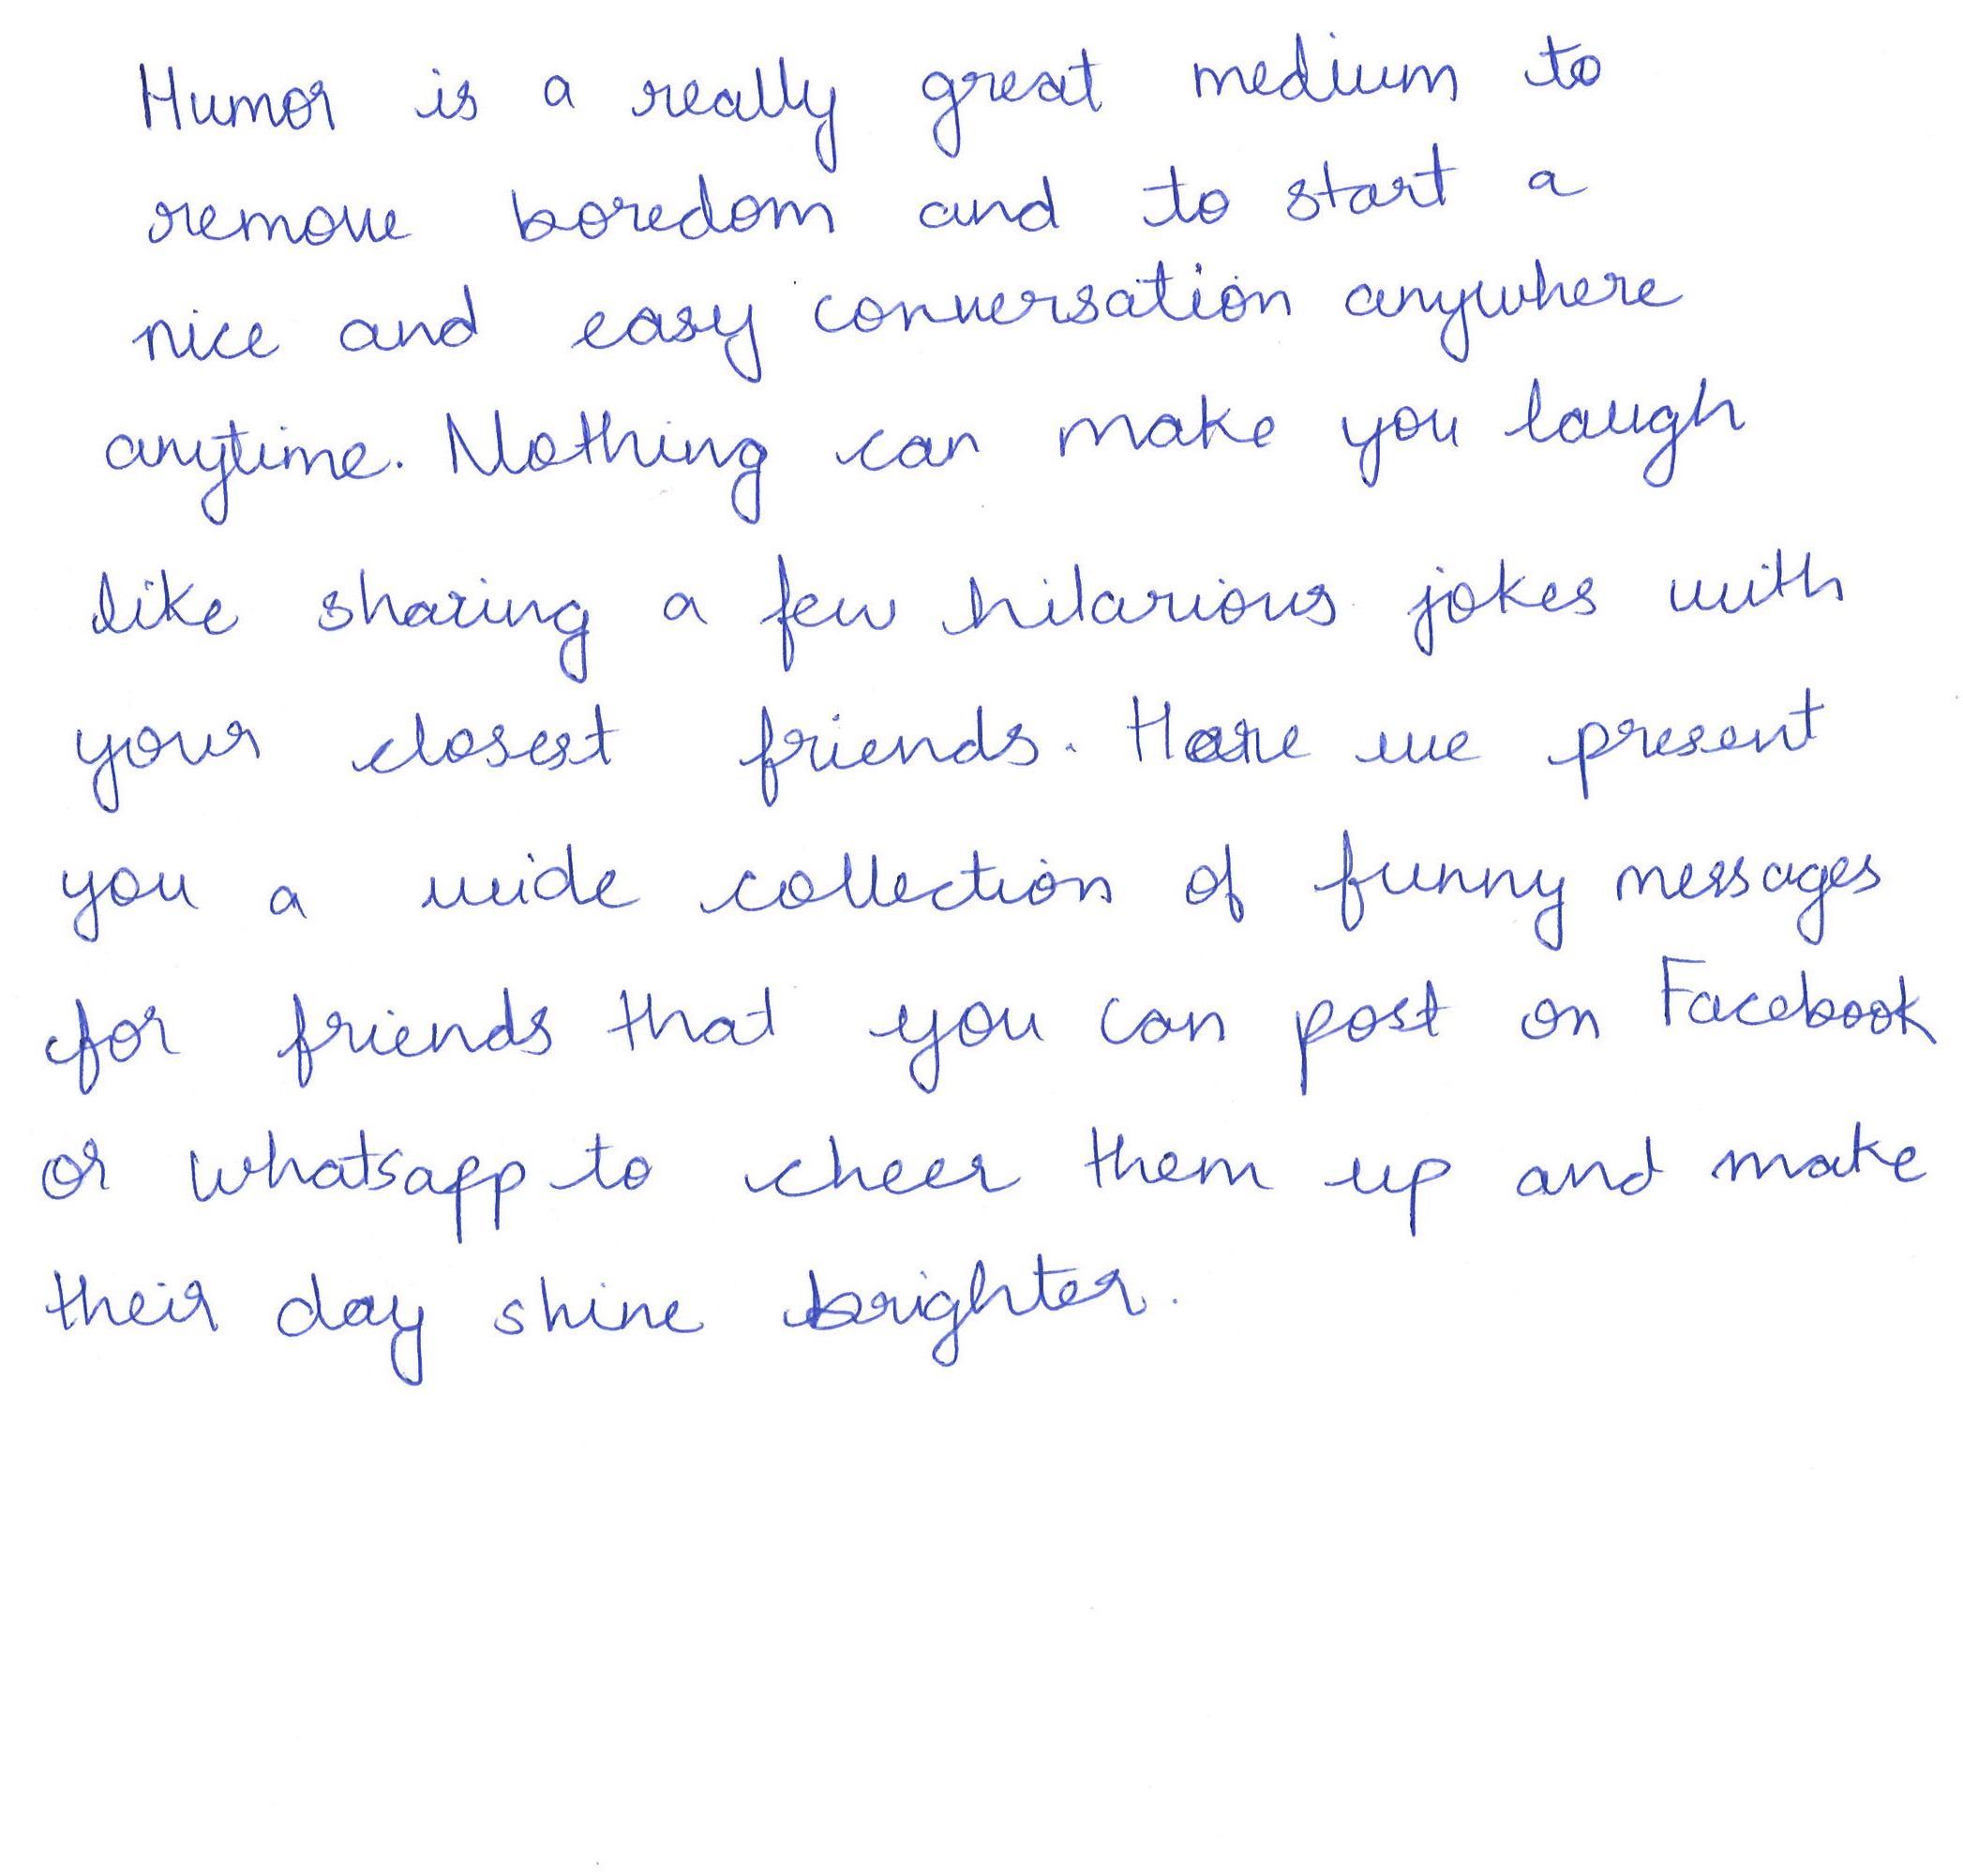 Humor is a really great medium to
remove boredom and to start a
nice and easy conversation anywhere
anytime. Nothing can make you laugh
like sharing a few hilarious jokes with
your closest friends. Here we present
you a wide collection of funny messages
for friends that you can post on Facebook
or whatsapp to cheer them up and make
their day shine brighter.